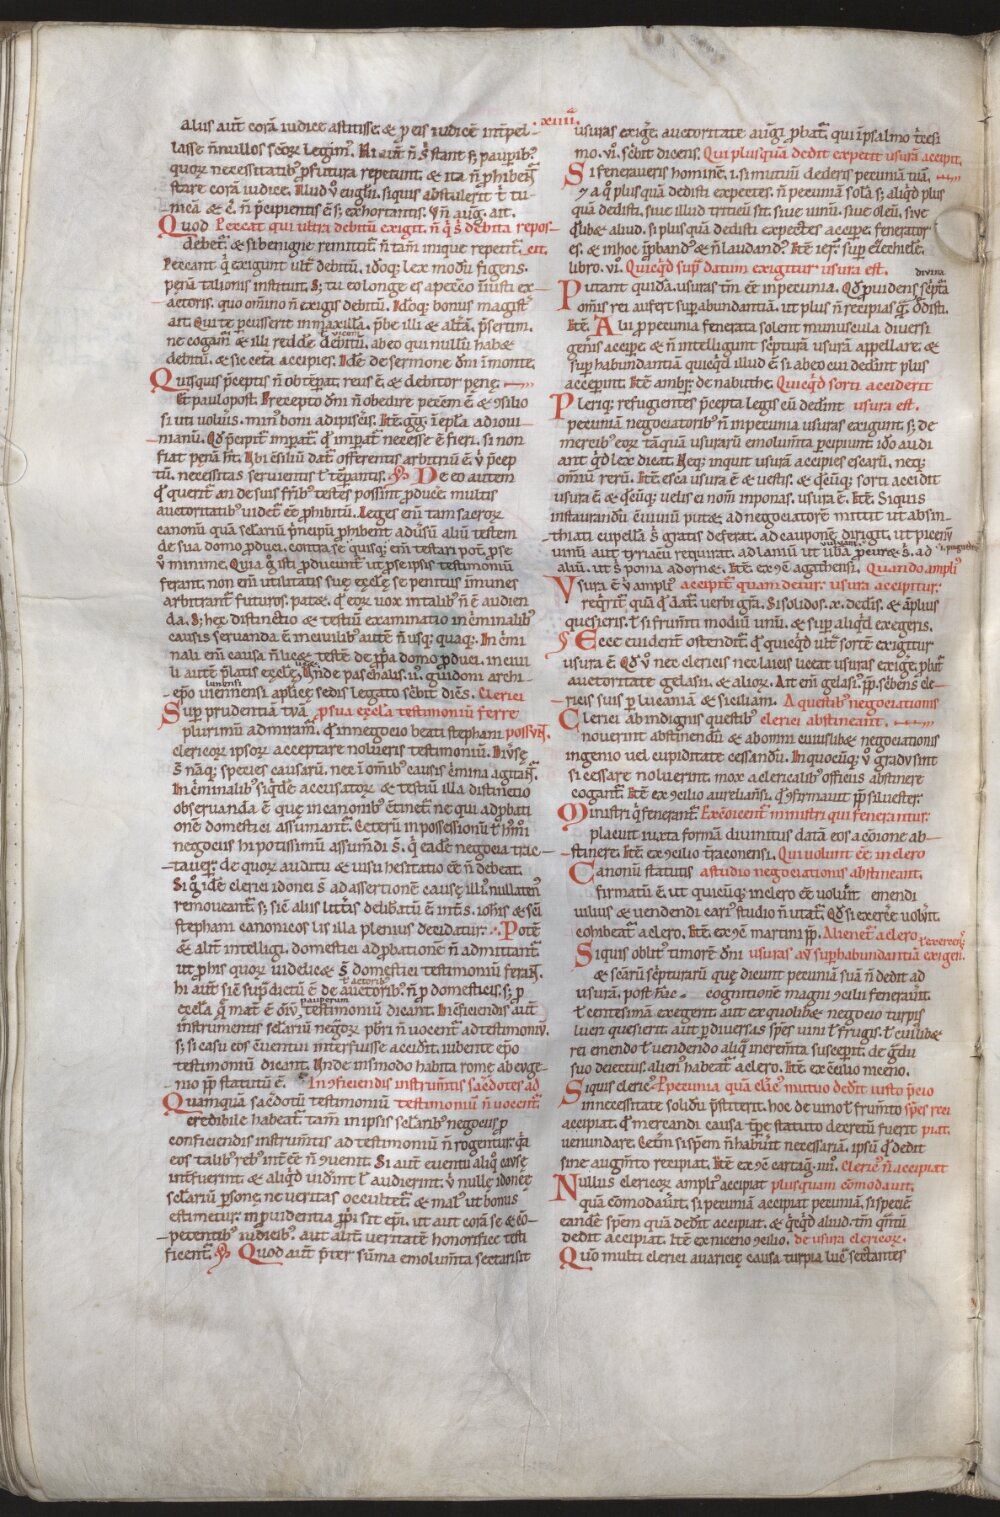 xiiii.
alius aut̄ corā iudice astitisse. & ꝑ eis iudicē int̄pel-
lasse n̄nullos sc̄oꝝ legim᷒. Hi aut̄ n̄ s̄ stant s; pauꝑib᷒
quoꝝ necessitatib᷒ ꝓfutura repetunt. & ita n̄ ꝓhibent᷑
stare corā iudice. Illud ů euglii. siquis abstulerit t̄ tu-
nicā & c̄. n̄ p̄cipientis ē s; exhortantis. Vn̄ aug᷒. ait.
Quod Peccat qui ultra debitū exigit. n̄ q̄ s̄ debita repos-
debet᷑. & si benigne remittit᷑ n̄ tam̄ inique repetit᷑. cit.
Peccant q̄ exigunt ult᷑ debitū. idcoq; lex modū figens.
penā talionis instituit. S; tu eo longe es a petēdo iniusti ex-
actoris. quo om̄ino n̄ exigis debitū. Idcoq; bonus magist᷑
ait. Qui te pcusserit in maxillā. p̄be illi & alt̄ā. p̄sertim.
ne cogant̄ & illi redde᷑ debitū. ab eo qui nullū habet
vicem
debitū. & sic cet̄a accipies. Idē de sermone dn̄i in monte.
Quisquis p̄ceptis n̄ obtēpat. reus ē. & debitor pene.
Et paulo post. Precepto dn̄i n̄ obedire peccm̄ ē. & ɔsilio
si uti volum᷒. min᷒ boni adipiscim᷒. Itē. gg᷒. ī epl̄a ad ioui-
nianū. Qd̄ p̄cipit᷑ impat᷑. qd̄ impat᷑ necesse ē fieri. si non
fiat penā ht̄. Ubi ɔsiliū dat᷑. offerentis arbitriū ē. u̇ p̄cep
tū. necessitas seruientis t̄ tēpantis. De eo autem
qd̄ querit᷑ an de suis fr̄ib᷒ testes possint ꝓduc̄e. multis
auctoritatib᷒ uidet᷑ eē ꝓhibitū. Leges eni tam sacroꝝ
canonū quā sc̄lariū p̄ncipū ꝓhibent adūsū aliū testem
de sua domo ꝓduci. contra se quisq; eni testari pot̄. ꝓ se
u̇ minime. Quia q̊ isti ꝓducunt᷑ ut ꝓ se ipsis testimoniū
ferant. non eni utilitatis sue eccl̄e se penitus īmunes
arbitrant᷑ futuros. patet. qd̄ eoꝝ uox in talib᷒ n̄ ē audien
da. S; hec distinctio & testiū examinatio in c̄minalib᷒
causis seruanda ē. in ciuilib᷒ autē n̄ usq; quaq;. In c̄mi
nali eni causa n̄ licet testē de ꝓpa domo ꝓduci. in ciui
li autē p̄latis eccl̄e. licet. Unde paschalis. ii. guidoni archi
lunensi
epo uiennensi aplice sedis legato sc̄bit dicēs. Clerici
Suꝑ prudentiā tuā ꝓ sua eccl̄a testimoniū ferre
plurimū admiram᷑. qd̄ in negocio beati stephani possvn̄.
clericoꝝ ipsoꝝ acceptare nolueris testimoniū. Diūse
s̄ naq; species causarū. nec ī om̄ib᷒ causis c̄mina agitant᷑.
In c̄minalib᷒ siqdē accusatoꝝ & testiū illa distinctio
obseruanda ē que in canonib᷒ ɔtinet᷑. ne qui ad ꝓbati
onē domestici assumant᷑. Ceterū in possessionū t̄ hm̄oi
negociis hi potissimū assum̄di s̄. q̄ eadē negocia trac-
tauer̄. de quoꝝ auditu & uisu hesitatio eē n̄ debeat.
Si q̊ idē clerici idonei s̄ ad assertionē cause illi᷒ nullaten᷒
remoueant᷑. s; sic̄ aliis litt̄is delibatū ē int̄ s. ioh̄is & sc̄i
stephani canonicos lis illa plenius decidatur. Potē
ē alit̄ intelligi. domestici ad ꝓbationē n̄ admittant᷑
ut ꝓ his quoꝝ uidelicet s̄ domestici testimoniū ferant᷑.
hi aut̄ sic̄ sup dictū ē de auctorib᷒. n̄ ꝓ domesticis. s; ꝓ
t̄ actorib᷒
pauperum
eccl̄a q̄ mat̄ ē om̄iū testimoniū dicant. In ɔficiendis aut̄
instrumentis sc̄lariū negcioꝝ pbri n̄ uocent᷑ ad testimoniū.
s; si casu eos ɔuentui interfuisse accidit. iubente epo
testimoniū dicant. Unde in sinodo habita rome ab euge-
nio pp statutū ē. In ɔficiendis instrum̄tis sac̄dotes ad
Quamquā sac̄dotū testimoniū testimoniū n̄ uocent᷑.
credibile habeat᷑. tam̄ in ipsis sc̄larib᷒ negociis ꝓ
conficiendis instrum̄tis ad testimoniū n̄ rogentur. qr̄
eos talib᷒ reb᷒ int̄ec̄ n̄ ɔuenit. Si aut̄ euentu aliq̊ cause
int̄fuerint. & aliqd̄ uid̄int t̄ audierint. u̇ nulle idonee
sc̄lariū ꝑsone. ne ueritas occultet᷑. & mal᷒ ut bonus
estimetur. in ꝓuidentia ꝓpi sit epi. ut aut corā se & cō-
petentib᷒ iudicib᷒. aut alit̄. ueritatē honorifice testi
ficent᷑. Quod aut̄ p̄ter sūma emolum̄ta sectari sit
usuras exig̊e. auctoritate aug᷒i ꝓbat᷑. qui in psalmo t̄cesi
mo. vi. sc̄bit dicens. Qui plusquā dedit expetit usurā accipit.
Si feneraueris hominē. i. si mutuū dederis pecuniā tuā.
a q̊ plus quā dedisti expectes. n̄ pecuniā solā s; aliqd̄ plus
quā dedisti. siue illud triticū sit. siue uinū. siue oleū. sive
qd̄libet aliud. si plus quā dedisti expectes accipe. fenerator
es. & in hoc ip̄band᷒ & n̄ laudand᷒. Itē ier᷒. suꝑ ezechiele.
libro. vi. Quicqd̄ sup datum exigitur usura est. divina
Putant quidā. usuras tm̄ eē in pecunia. Qd̄ ꝓuidens sc̄ptā
om̄is rei aufert suꝑabundantiā. ut plus n̄ recipias q̄ dedisti.
Itē. Alii ꝓ pecunia fenerata solent munuscula diuersi
gen̄is accipe. & n̄ intelligunt sc̄pturā usurā appellare. &
suꝑ habundantiā quicqd̄ illud ē si ab eo cui ded̄int plus
acceꝑint. Itē ambr̄. de nabuthe. Quicqd̄ sorti acciderit
Pleriq; refugientes p̄cepta legis cū ded̄int usura est.
pecuniā negociatorib᷒ n̄ in pecunia usuras exigunt. s; de
mercib᷒ eoꝝ tāquā usurarū emolum̄ta ꝑcipiunt. idō audi
ant qd̄ lex dicat. Neq; inquit usurā accipies escarū. neq;
om̄iū rerū. Itē. Esca usura ē & uestis. & qd̄cūq; sorti accidit
usura ē. & qd̄cūq; uelis ei nom̄ inponas. usura ē. Itē. Siquis
instaurandū ɔuiuiū putet. ad negociatorē mittit ut absin-
thiati cupellā s̄ gratis deferat. ad cauponē dirigit. ut picenū
uinū aut tyriacū requirat. ad laniū ut uuluā ꝓcuret s̄. ad
aliū. ut s̄ poma adornet. Itē. ex ɔc̄ agathensi. Quando ampli᷒
Vsura ē u̇ ampli᷒ accipit᷑ quam detur. usura accipitur.
reqrit᷑ quā q̊ dat᷑. verbi gr̄a. Si solidos. x. ded̄is. & āplius
quesieris. t̄ si frum̄ti modiū unū. & suꝑ aliqd̄ exegeris.
Ecce euident᷑ ostendit᷑. qd̄ quicqd̄ ult᷑ sortē exigitur
usura ē. Qd̄ u̇ nec clericis nec laicis liceat usuras exig̊e. ꝓbat᷑
auctoritate gelasii. & alioꝝ. Ait eni gelasi᷒. pp. sc̄bens cle-
ricis suis ꝑ lucaniā & siciliam. A questib᷒ negociationis
Clerici ab indignis questib᷒ clerici abstineant.
nouerint abstinendū & ab omni cuiuslibet negociationis
ingenio uel cupiditate cessandū. In quocūq; u̇ gradu sint
si cessare noluerint. mox a clericalib᷒ officiis abstinere
cogant᷑. Itē ex ɔcilio aurelian̄si. qd̄ ɔfirmauit pp siluester.
Ministri q̄ fenerant᷑. Exc̄oicent᷑ ministri qui fenerantur.
placuit iuxta formā diuinitus datā eos a c̄oione ab-
stinere. Itē ex ɔcilio t̄raconensi. Qui uolunt eē in clero
Canonū statutis a studio negociationis abstineant.
firmatū ē. ut quicūq; in clero eē uolūit emendi
uilius & uendendi cari᷒ studio n̄ utat᷑. Qd̄ si exerc̄e uolūit.
cohibeat᷑ a clero. Itē ex ɔc̄ martini pp. Alienet᷑ a clero
Siquis oblit᷒ timorē dn̄i usuras aut suꝑhabundantiā exigen̄.
& sc̄arū sc̄pturarū que dicunt pecuniā suā n̄ dedit ad
usurā. post hāc cognitionē magni ɔcilii fenerauit.
t̄ centesimā exegerit. aut ex quolibet negocio turpis
lucri quesierit. aut̄ ꝑ diuersas spēs uini t̄ frugis. t̄ cuilibet
rei emendo t̄ uendendo aliq̊ increm̄ta susceꝑit. de g̊du
suo deiectus. alien᷒ habeat᷑ a clero. Itē ex ɔcilio niceno.
Siquis cleric᷒ Pecunia quā cl̄ic᷒ mutuo dedit iusto p̄cio
in necessitate solidū p̄stiterit. hoc de uino t̄ frum̄to spēs rei
accipiat. qd̄ mercandi causa tp̄e statuto decretū fuerit piat.
uenundare. Cet̄m si spēm n̄ habūit necessariā. ipsū qd̄ dedit
sine augm̄to recipiat. Itē ex ɔc̄ cartag᷒. iiii. Cleric᷒ n̄ accipiat
Nullus clericoꝝ ampli᷒ accipiat plus quam cōmodauit.
quā cōmodauit. si pecuniā accipiat pecuniā. si speciē
eandē spēm quā dedit accipiat. & qd̄qd̄ aliud. tm̄ qm̄tū
dedit accipiat. Itē ex niceno ɔcilio. de usura clericoꝝ.
Qm̄ multi clerici auaricie causa turpia lucra sectantes